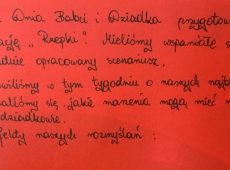 Dnia Babci i Dziadka przygotow
ację "Rzepki". Mieliśmy wspaniałe s
dnie opracowany scenariusz.
wiliśmy w tym tygodniu o naszych najb
ialiśmy się jakie marzenia mogą mieć n
dziadkowie.
fekty naszych rozmyślań :